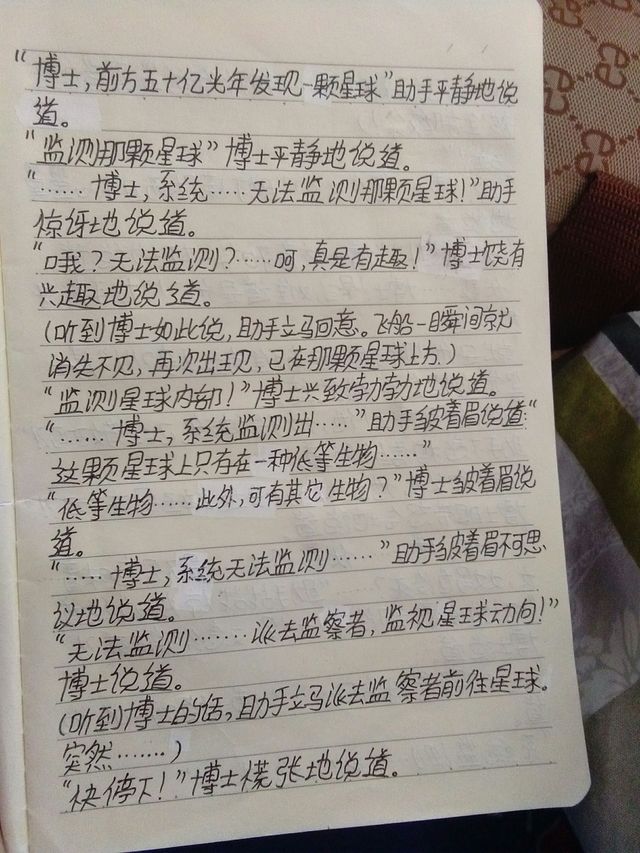 “博士，前方五十亿光年发现一颗星球”助手平静地说
道。
“监测那颗星球”博士平静地说道。
“……博士，系统……无法监测那颗星球！”助手
惊讶地说道。
“哦？无法监测？……呵，真是有趣！”博士饶有
兴趣地说道。
(听到博士如此说，助手立马回意。飞船一瞬间就
消失不见，再次出现，已在那颗星球上方。)
“监测星球内部！”博士兴致勃勃地说道。
“……博士，系统监测出……”助手皱着眉说道：“
这颗星球上只有在一种低等生物……”
“低等生物……此外，可有其它生物？”博士皱着眉说
道。
“……博士，系统无法监测……”助手皱着眉不可思
议地说道。
“无法监测……派去监察者，监视星球动向！”
博士说道。
(听到博士的话，助手立马派去监察者前往星球。
突然……)
“快停下！”博士慌张地说道。